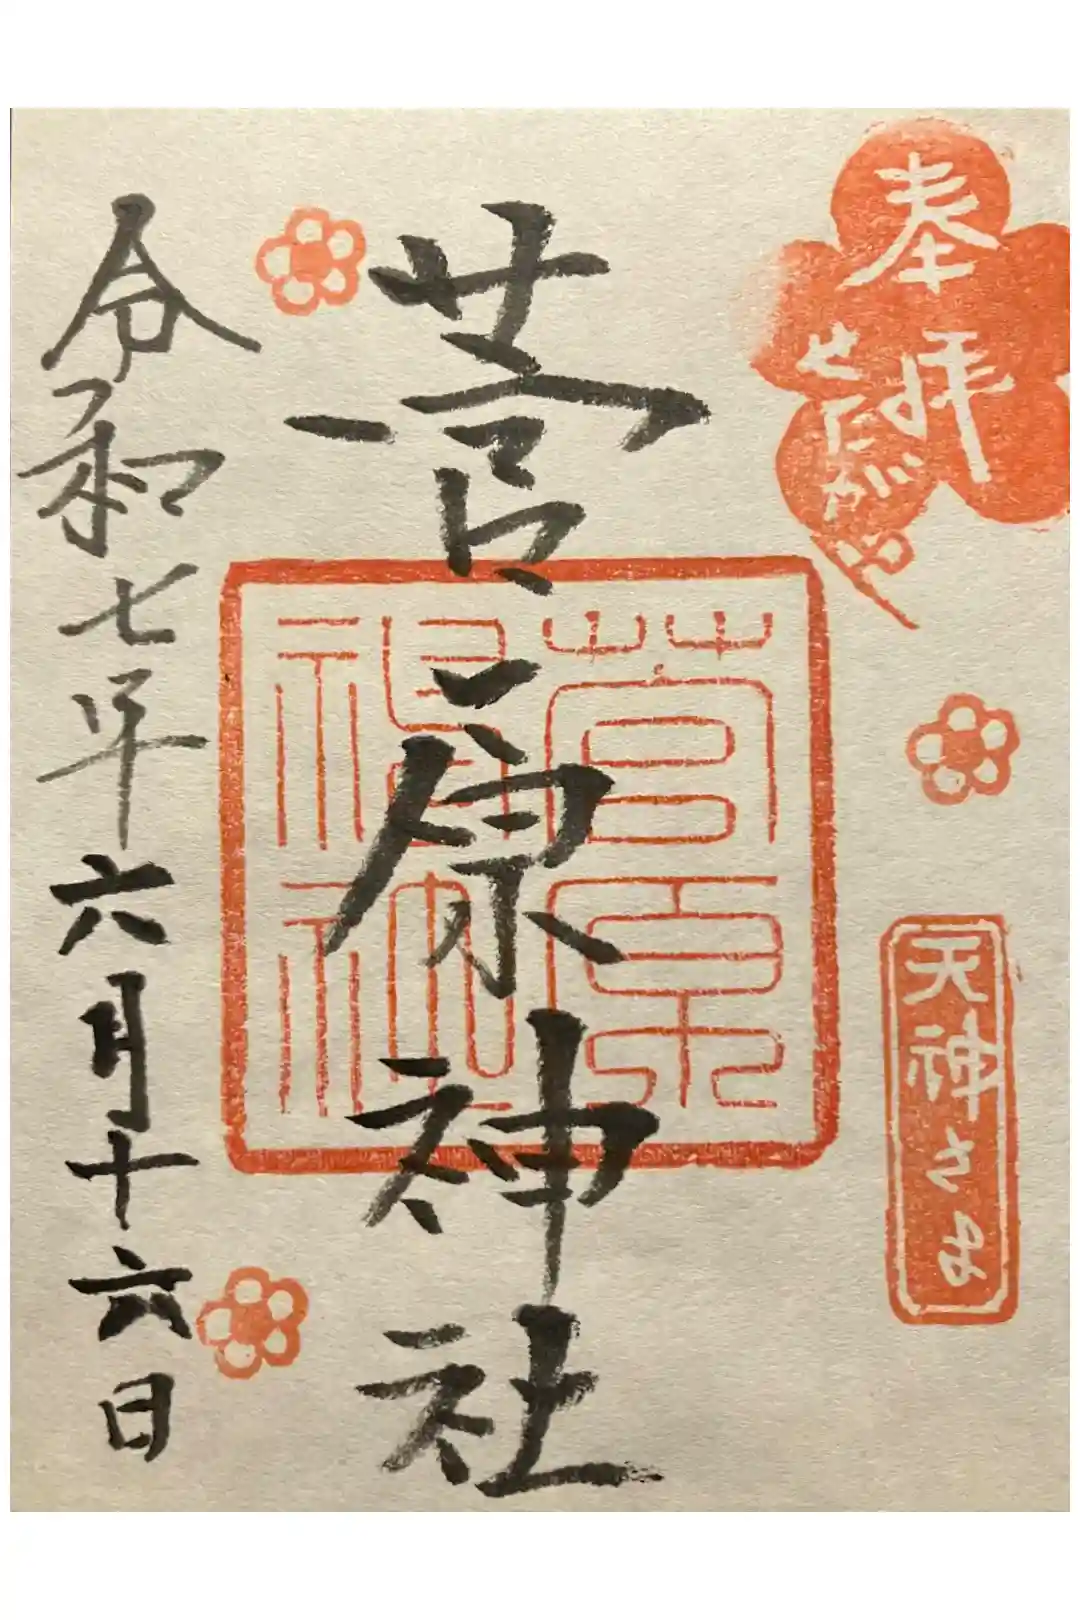 奉拝
せたがや
天神さま
菅原神社
菅原
神社
令和七年六月十六日